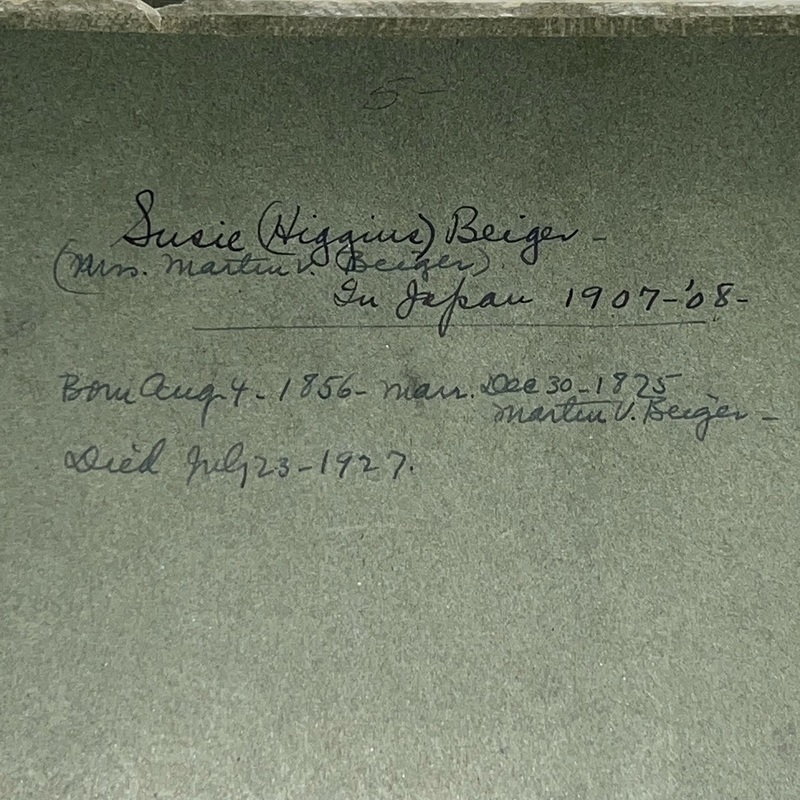 5-
Susie (Higgins) Beiger -
(Mrs. Martin V. Beiger)
In Japan 1907-'08-
Born Aug. 4 - 1856 - Marr. Dec 30 - 1875
Martin V. Beiger -
Died July 23 - 1927.